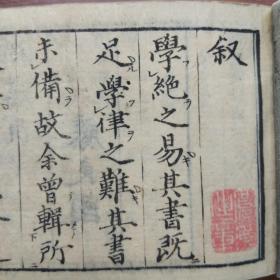 叙
學絶之易其書既
足學律之難其書
未備故余曾輯所